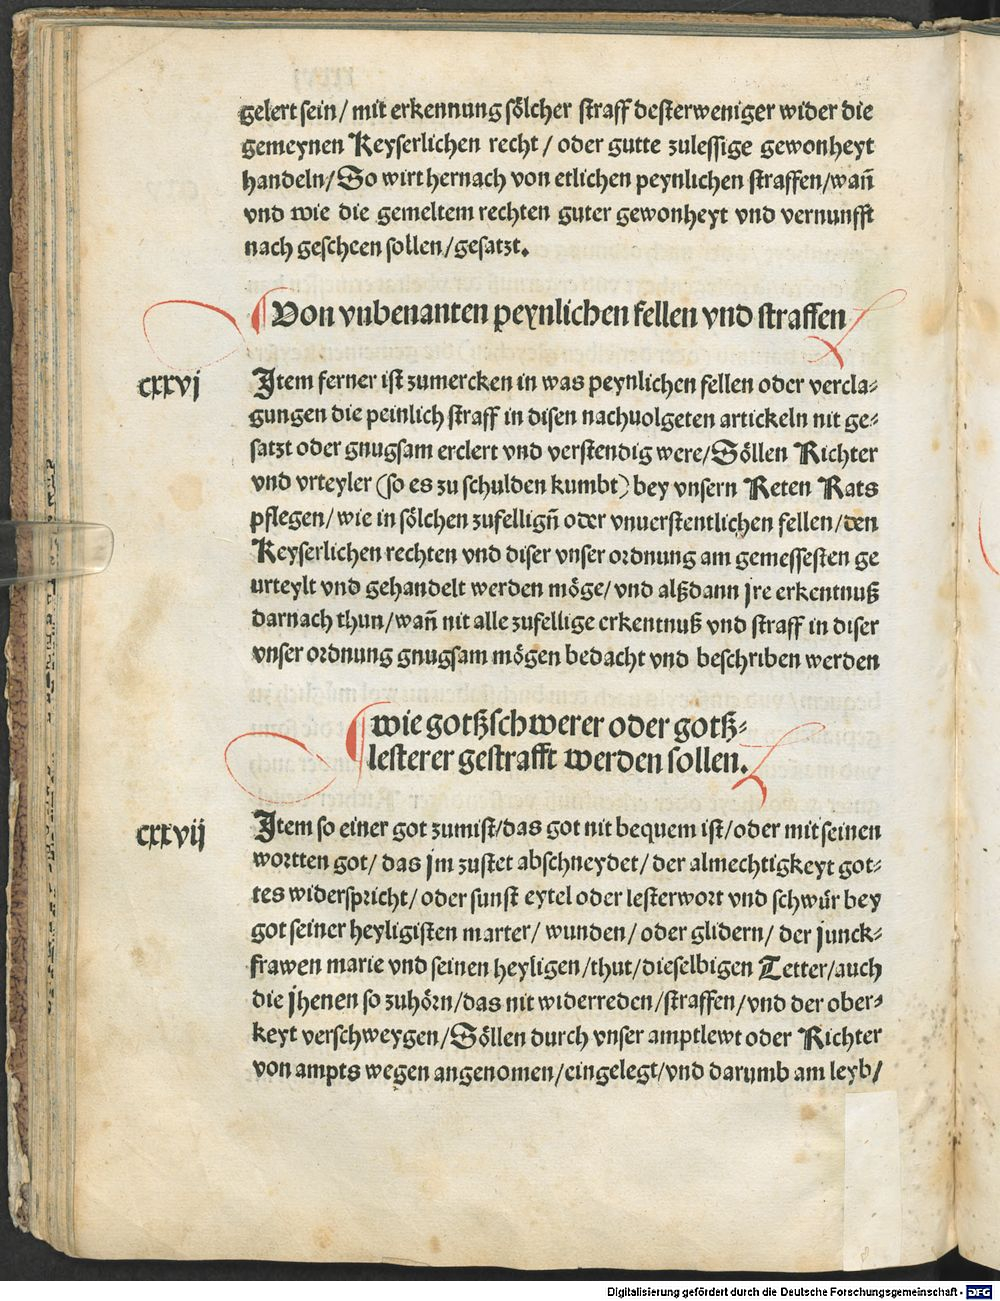 gelert sein/ mit erkennung sölcher straff desterweniger wider die
gemeynen Keyserlichen recht/ oder gutte zulessige gewonheyt
handeln/ So wirt hernach von etlichen peynlichen straffen/ wañ
vnd wie die gemeltem rechten guter gewonheyt vnd vernunfft
nach gescheen sollen/ gesatzt.
¶ Von vnbenanten peynlichen fellen vnd straffen
cxxvj
Item ferner ist zumercken in was peynlichen fellen oder vercla⸗
gungen die peinlich straff in disen nachuolgeten artickeln nit ge⸗
satzt oder gnugsam erclert vnd verstendig were/ Söllen Richter
vnd vrteyler (so es zu schulden kumbt) bey vnsern Reten Rats
pflegen/ wie in sölchen zufelligñ oder vnuerstentlichen fellen/ den
Keyserlichen rechten vnd diser vnser ordnung am gemessesten ge
urteylt vnd gehandelt werden möge/ vnd alßdann jre erkentnuß
darnach thun/ wañ nit alle zufellige erkentnuß vnd straff in diser
vnser ordnung gnugsam mögen bedacht vnd beschriben werden
¶ wie gotßschwerer oder gotß⸗
lesterer gestrafft werden sollen.
cxxvij
Item so einer got zumist/ das got nit bequem ist/ oder mit seinen
wortten got/ das jm zustet abschneydet/ der almechtigkeyt got⸗
tes widerspricht/ oder sunst eytel oder lesterwort vnd schwür bey
got seiner heyligisten marter/ wunden/ oder glidern/ der junck⸗
frawen marie vnd seinen heyligen/ thut/ dieselbigen Tetter/ auch
die jhenen so zuhörn/ das nit widerreden/ straffen/ vnd der ober⸗
keyt verschweygen/ Söllen durch vnser amptlewt oder Richter
von ampts wegen angenomen/ eingelegt/ vnd darumb am leyb/
Digitalisierung gefördert durch die Deutsche Forschungsgemeinschaft - DFG